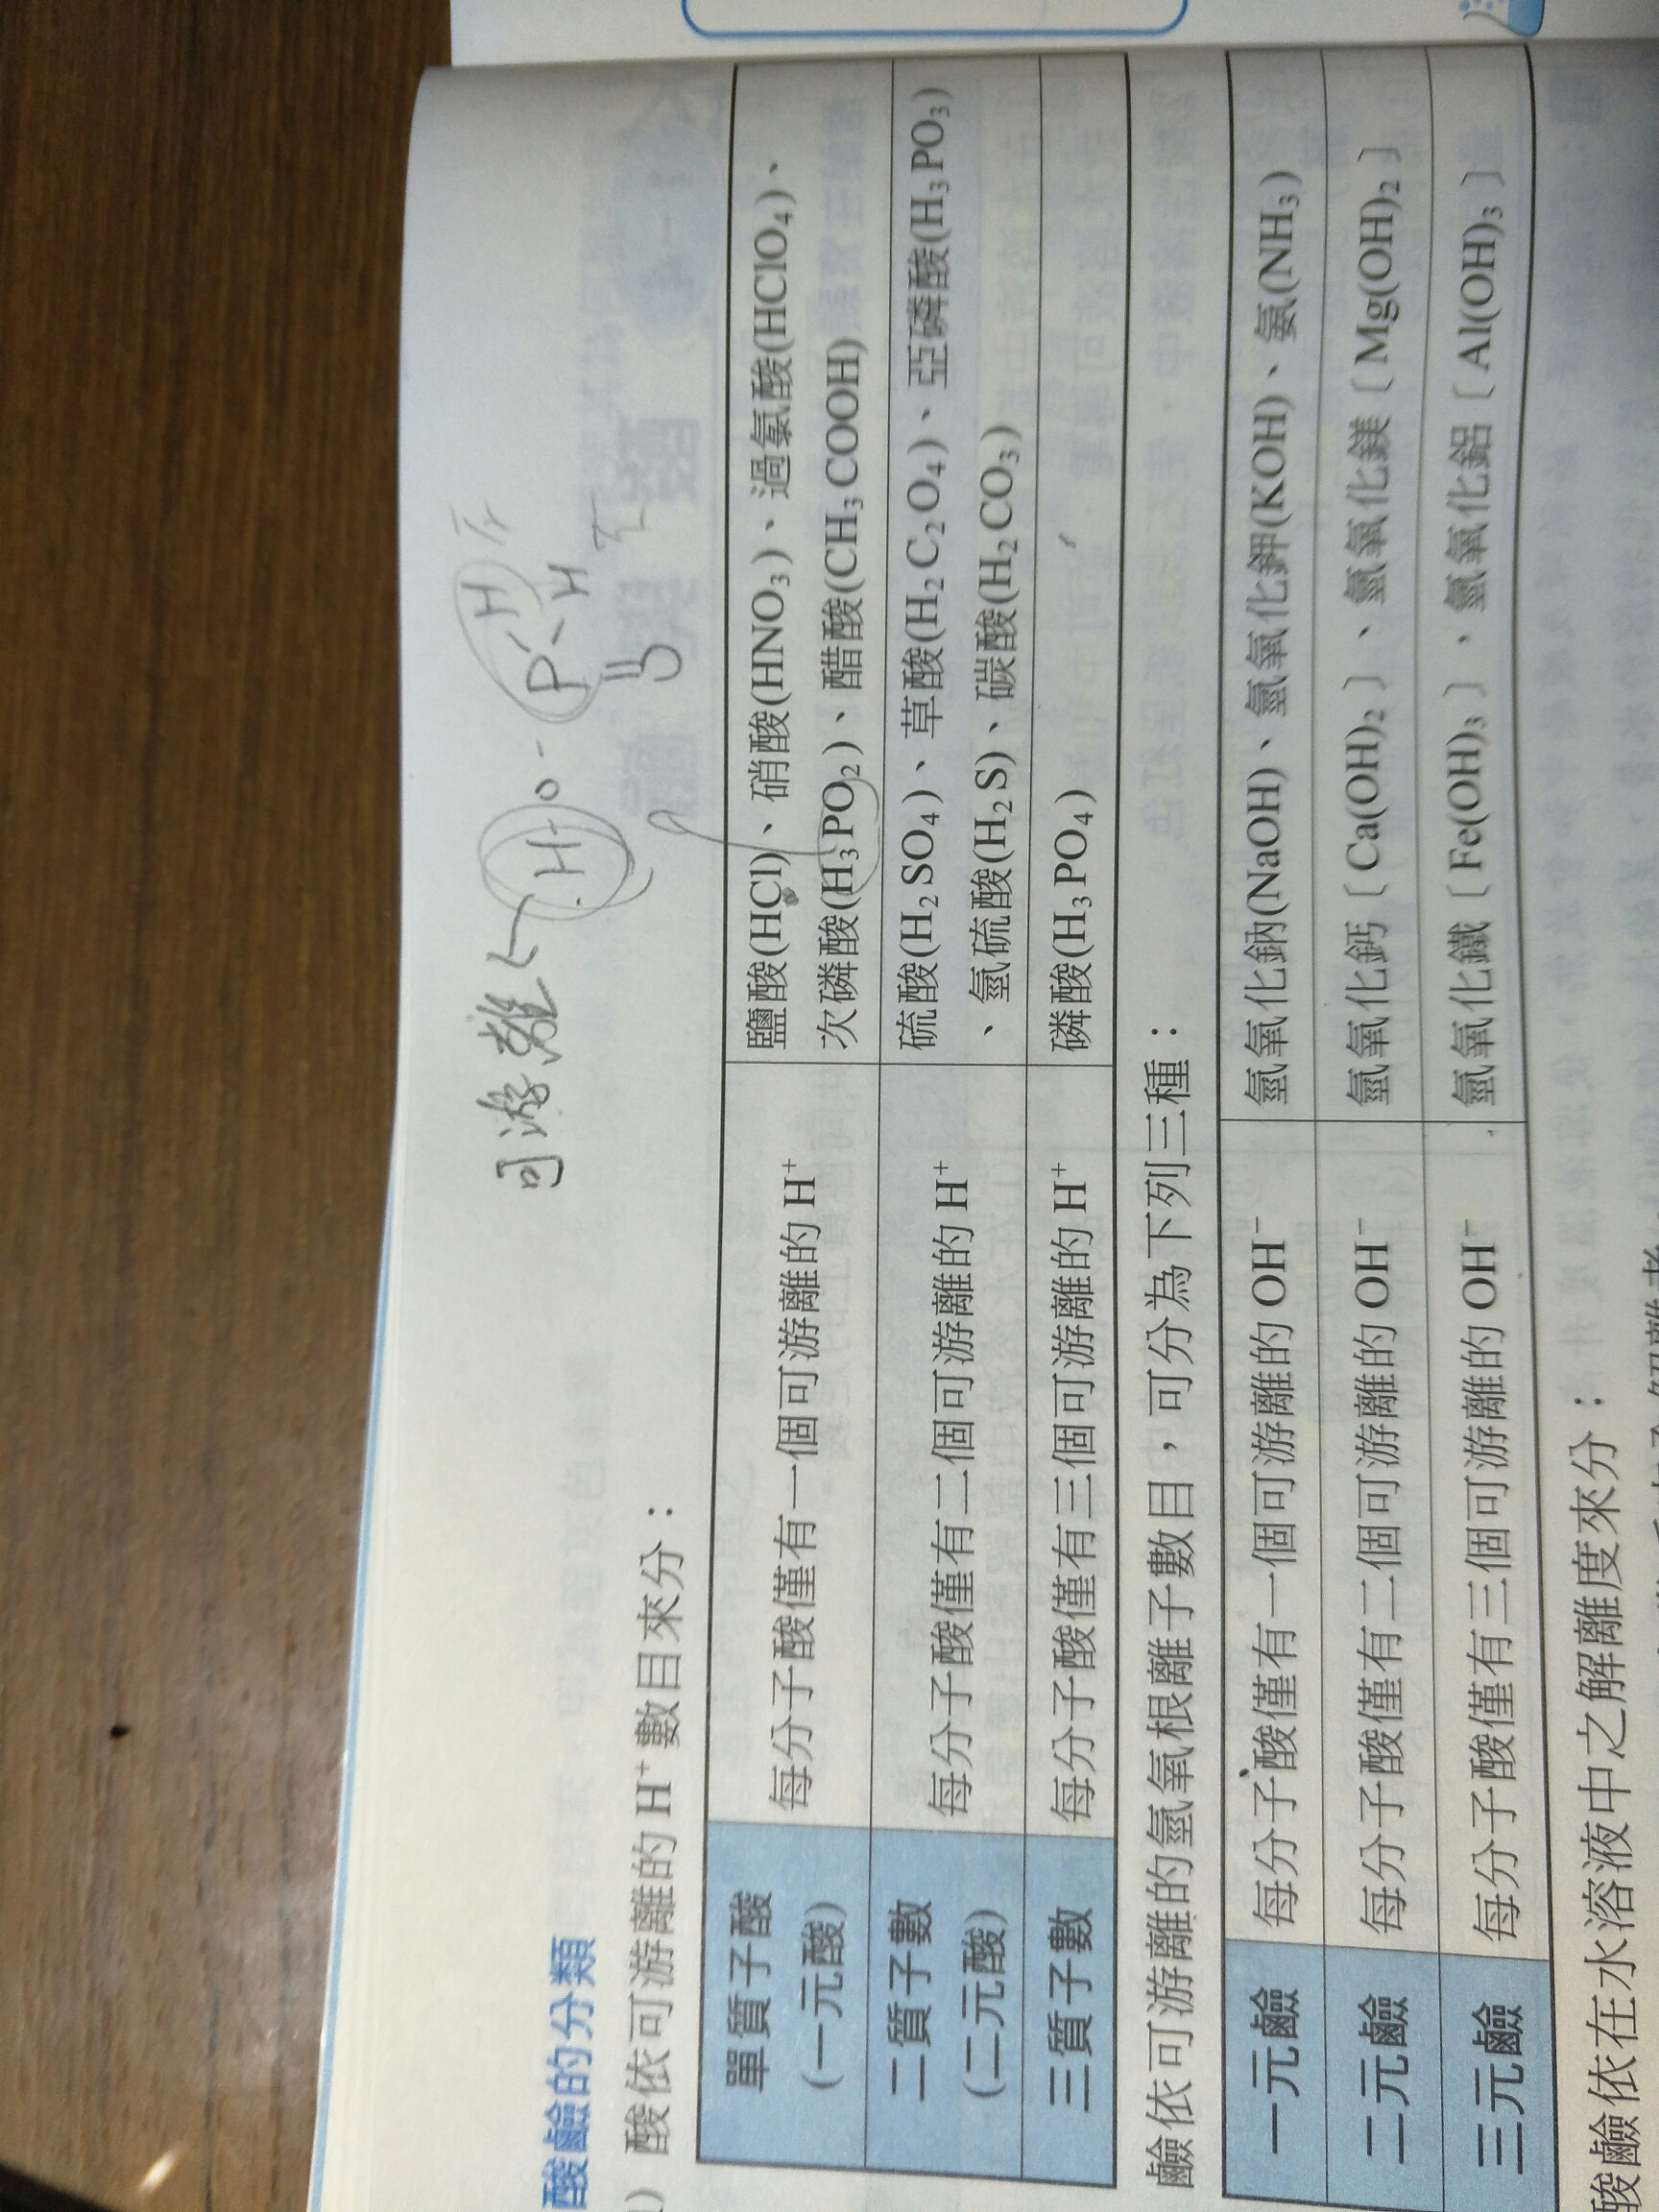 可游離
H O P H
H
O
不
酸鹼的分類
酸依可游離的 H⁺ 數目來分：
單質子酸
(一元酸)
每分子酸僅有一個可游離的 H⁺
鹽酸(HCl)、硝酸(HNO₃)、過氯酸(HClO₄)、
次磷酸(H₃PO₂)、醋酸(CH₃COOH)
二質子數
(二元酸)
每分子酸僅有二個可游離的 H⁺
硫酸(H₂SO₄)、草酸(H₂C₂O₄)、亞磷酸(H₃PO₃)
、氫硫酸(H₂S)、碳酸(H₂CO₃)
三質子數
每分子酸僅有三個可游離的 H⁺
磷酸(H₃PO₄)
鹼依可游離的氫氧根離子數目，可分為下列三種：
一元鹼
每分子酸僅有一個可游離的 OH⁻
氫氧化鈉(NaOH)、氫氧化鉀(KOH)、氨(NH₃)
二元鹼
每分子酸僅有二個可游離的 OH⁻
氫氧化鈣〔Ca(OH)₂〕、氫氧化鎂〔Mg(OH)₂〕
三元鹼
每分子酸僅有三個可游離的 OH⁻
氫氧化鐵〔Fe(OH)₃〕、氫氧化鋁〔Al(OH)₃〕
酸鹼依在水溶液中之解離度來分：